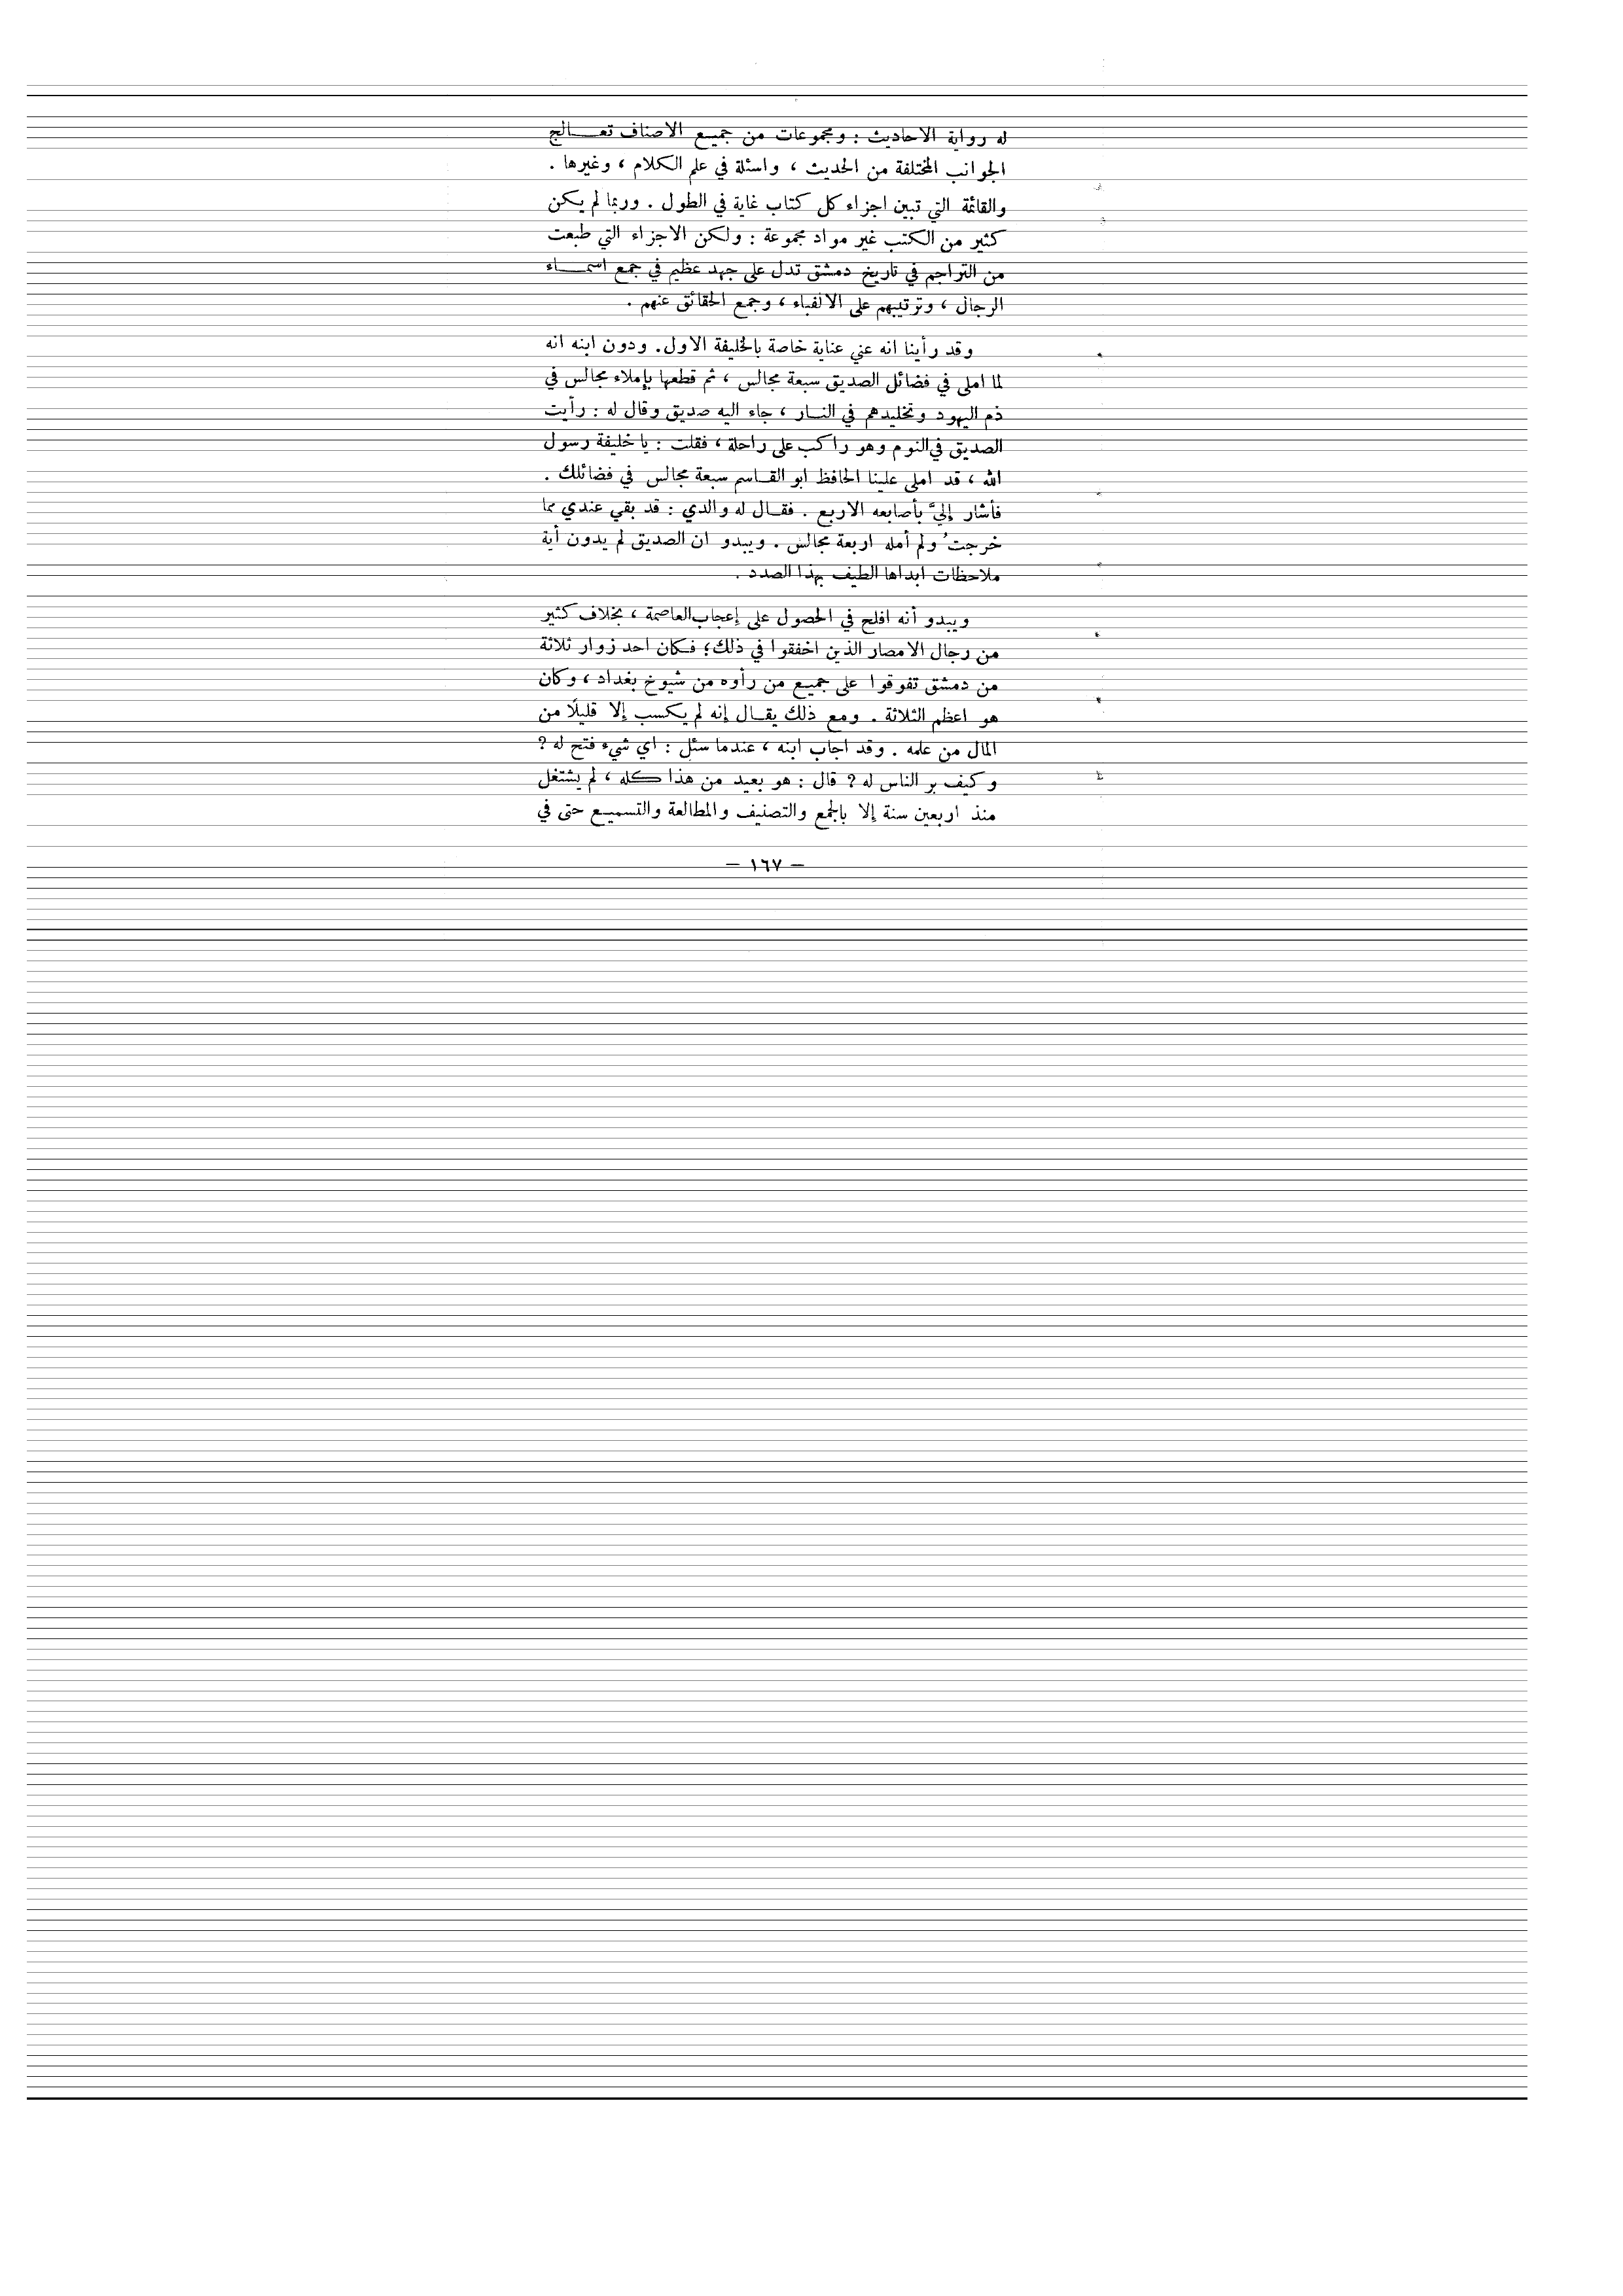 له رواية الاحاديث : ومجموعات من جميع الاصناف تعالج
الجوانب المختلفة من الحديث ، واسئلة في علم الكلام ، وغيرها .
والقائمة التي تبين اجزاء كل كتاب غاية في الطول . وربما لم يكن
كثير من الكتب غير مواد مجموعة : ولكن الاجزاء التي طبعت
من التراجم في تاريخ دمشق تدل على جهد عظيم في جمع اسماء
الرجال ، وترتيبهم على الالفباء ، وجمع الحقائق عنهم .
وقد رأينا انه عني عناية خاصة بالخليفة الاول. ودون ابنه انه
لما املى في فضائل الصديق سبعة مجالس ، ثم قطعها بإملاء مجالس في
ذم اليهود وتخليدهم في النار ، جاء اليه صديق وقال له : رأيت
الصديق في النوم وهو راكب على راحلة ، فقلت : يا خليفة رسول
الله ، قد املى علينا الحافظ ابو القاسم سبعة مجالس في فضائلك .
فأشار إليَّ بأصابعه الاربع . فقال له والدي : قد بقي عندي مما
خرجتُ ولم أمله اربعة مجالس . ويبدو ان الصديق لم يدون أية
ملاحظات ابداها الطيف بهذا الصدد .
ويبدو أنه افلح في الحصول على إعجاب العاصمة ، بخلاف كثير
من رجال الامصار الذين اخفقوا في ذلك؛ فكان احد زوار ثلاثة
من دمشق تفوقوا على جميع من رأوه من شيوخ بغداد ، وكان
هو اعظم الثلاثة . ومع ذلك يقال إنه لم يكسب إلا قليلًا من
المال من علمه . وقد اجاب ابنه ، عندما سئل : اي شيء فتح له ?
وكيف بر الناس له ? قال : هو بعيد من هذا كله ، لم يشتغل
منذ اربعين سنة إلا بالجمع والتصنيف والمطالعة والتسميع حتى في
– ١٦٧ –